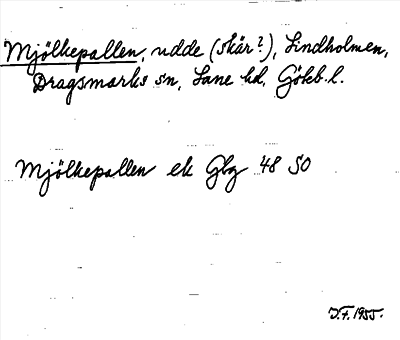 Mjölkepallen, udde (skär?), Lindholmen,
Dragsmarks sn, Lane hd, Gökb. l.
Mjölkepallen ek Gbg 48 SO
J.F. 1955.